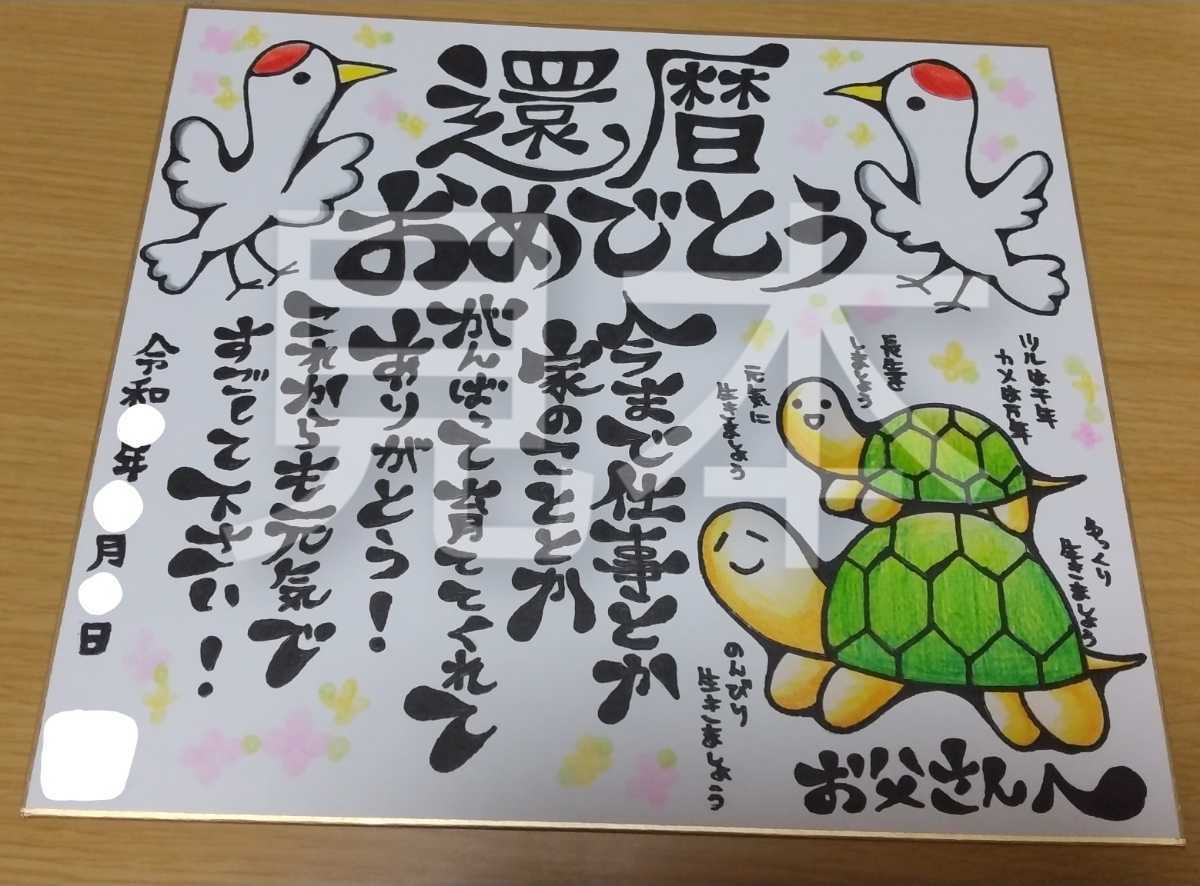 還暦
おめでとう
ツルは千年
カメは万年
長生き
しましょう
元気に
生きましょう
ゆっくり
生きましょう
のんびり
生きましょう
お父さんへ
今まで仕事とか
家のこととか
がんばって育ててくれて
ありがとう!
これからも元気で
すごしてて下さい!
令和 年 月 日
見本